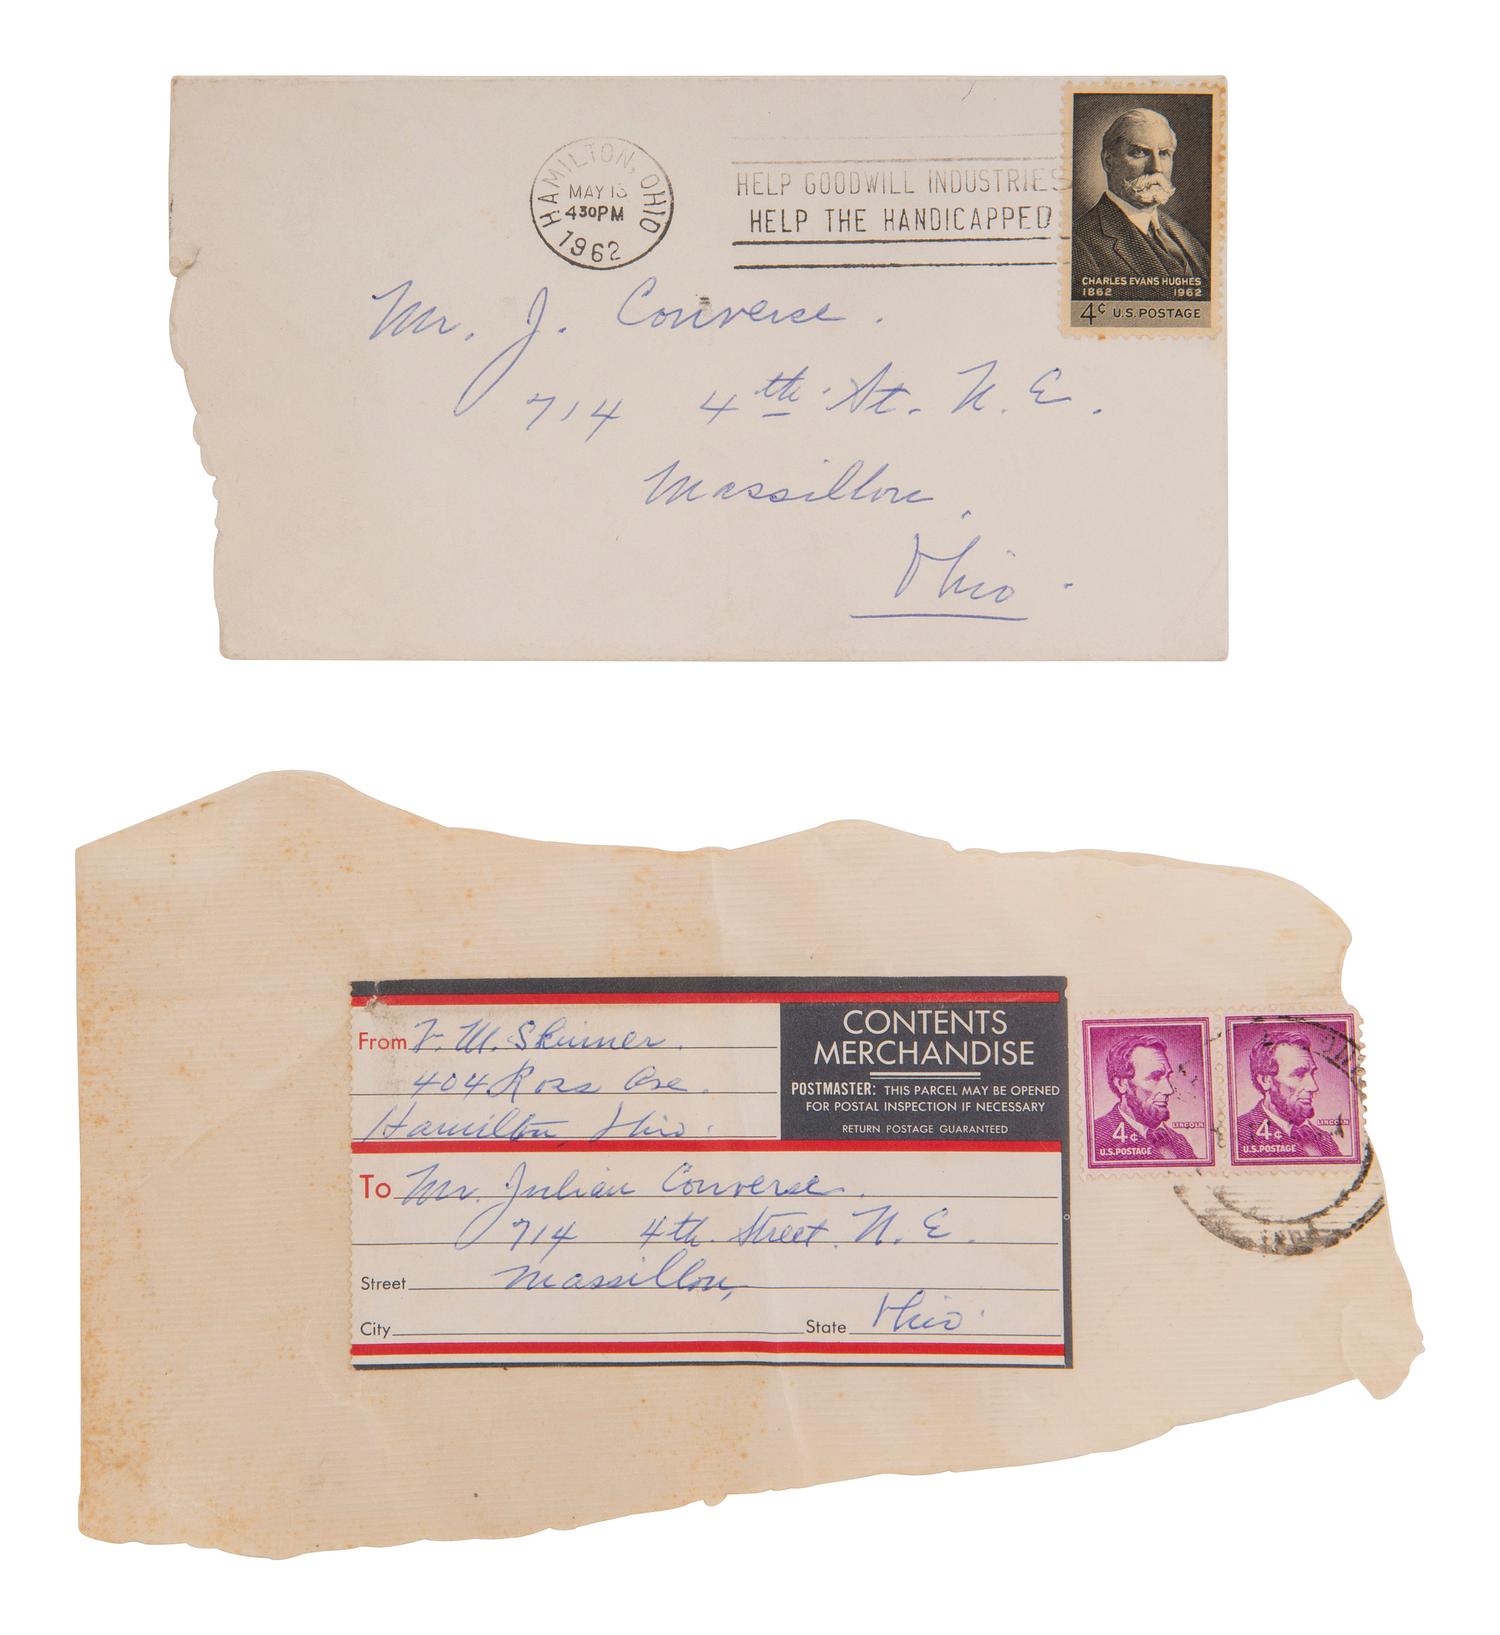 HAMILTON, OHIO
MAY 13
430PM
1962
HELP GOODWILL INDUSTRIES
HELP THE HANDICAPPED
CHARLES EVANS HUGHES
1862 1962
4¢ U.S. POSTAGE
Mr. J. Converse.
714 4th St. N. E.
Massillon,
Ohio.
From V. M. Skinner.
404 Ross Ave.
Hamilton, Ohio.
CONTENTS
MERCHANDISE
POSTMASTER: THIS PARCEL MAY BE OPENED
FOR POSTAL INSPECTION IF NECESSARY
RETURN POSTAGE GUARANTEED
To Mr. Julian Converse.
714 4th. Street. N. E.
Street Massillon,
City State Ohio.
4¢ LINCOLN
U.S. POSTAGE
4¢ LINCOLN
U.S. POSTAGE